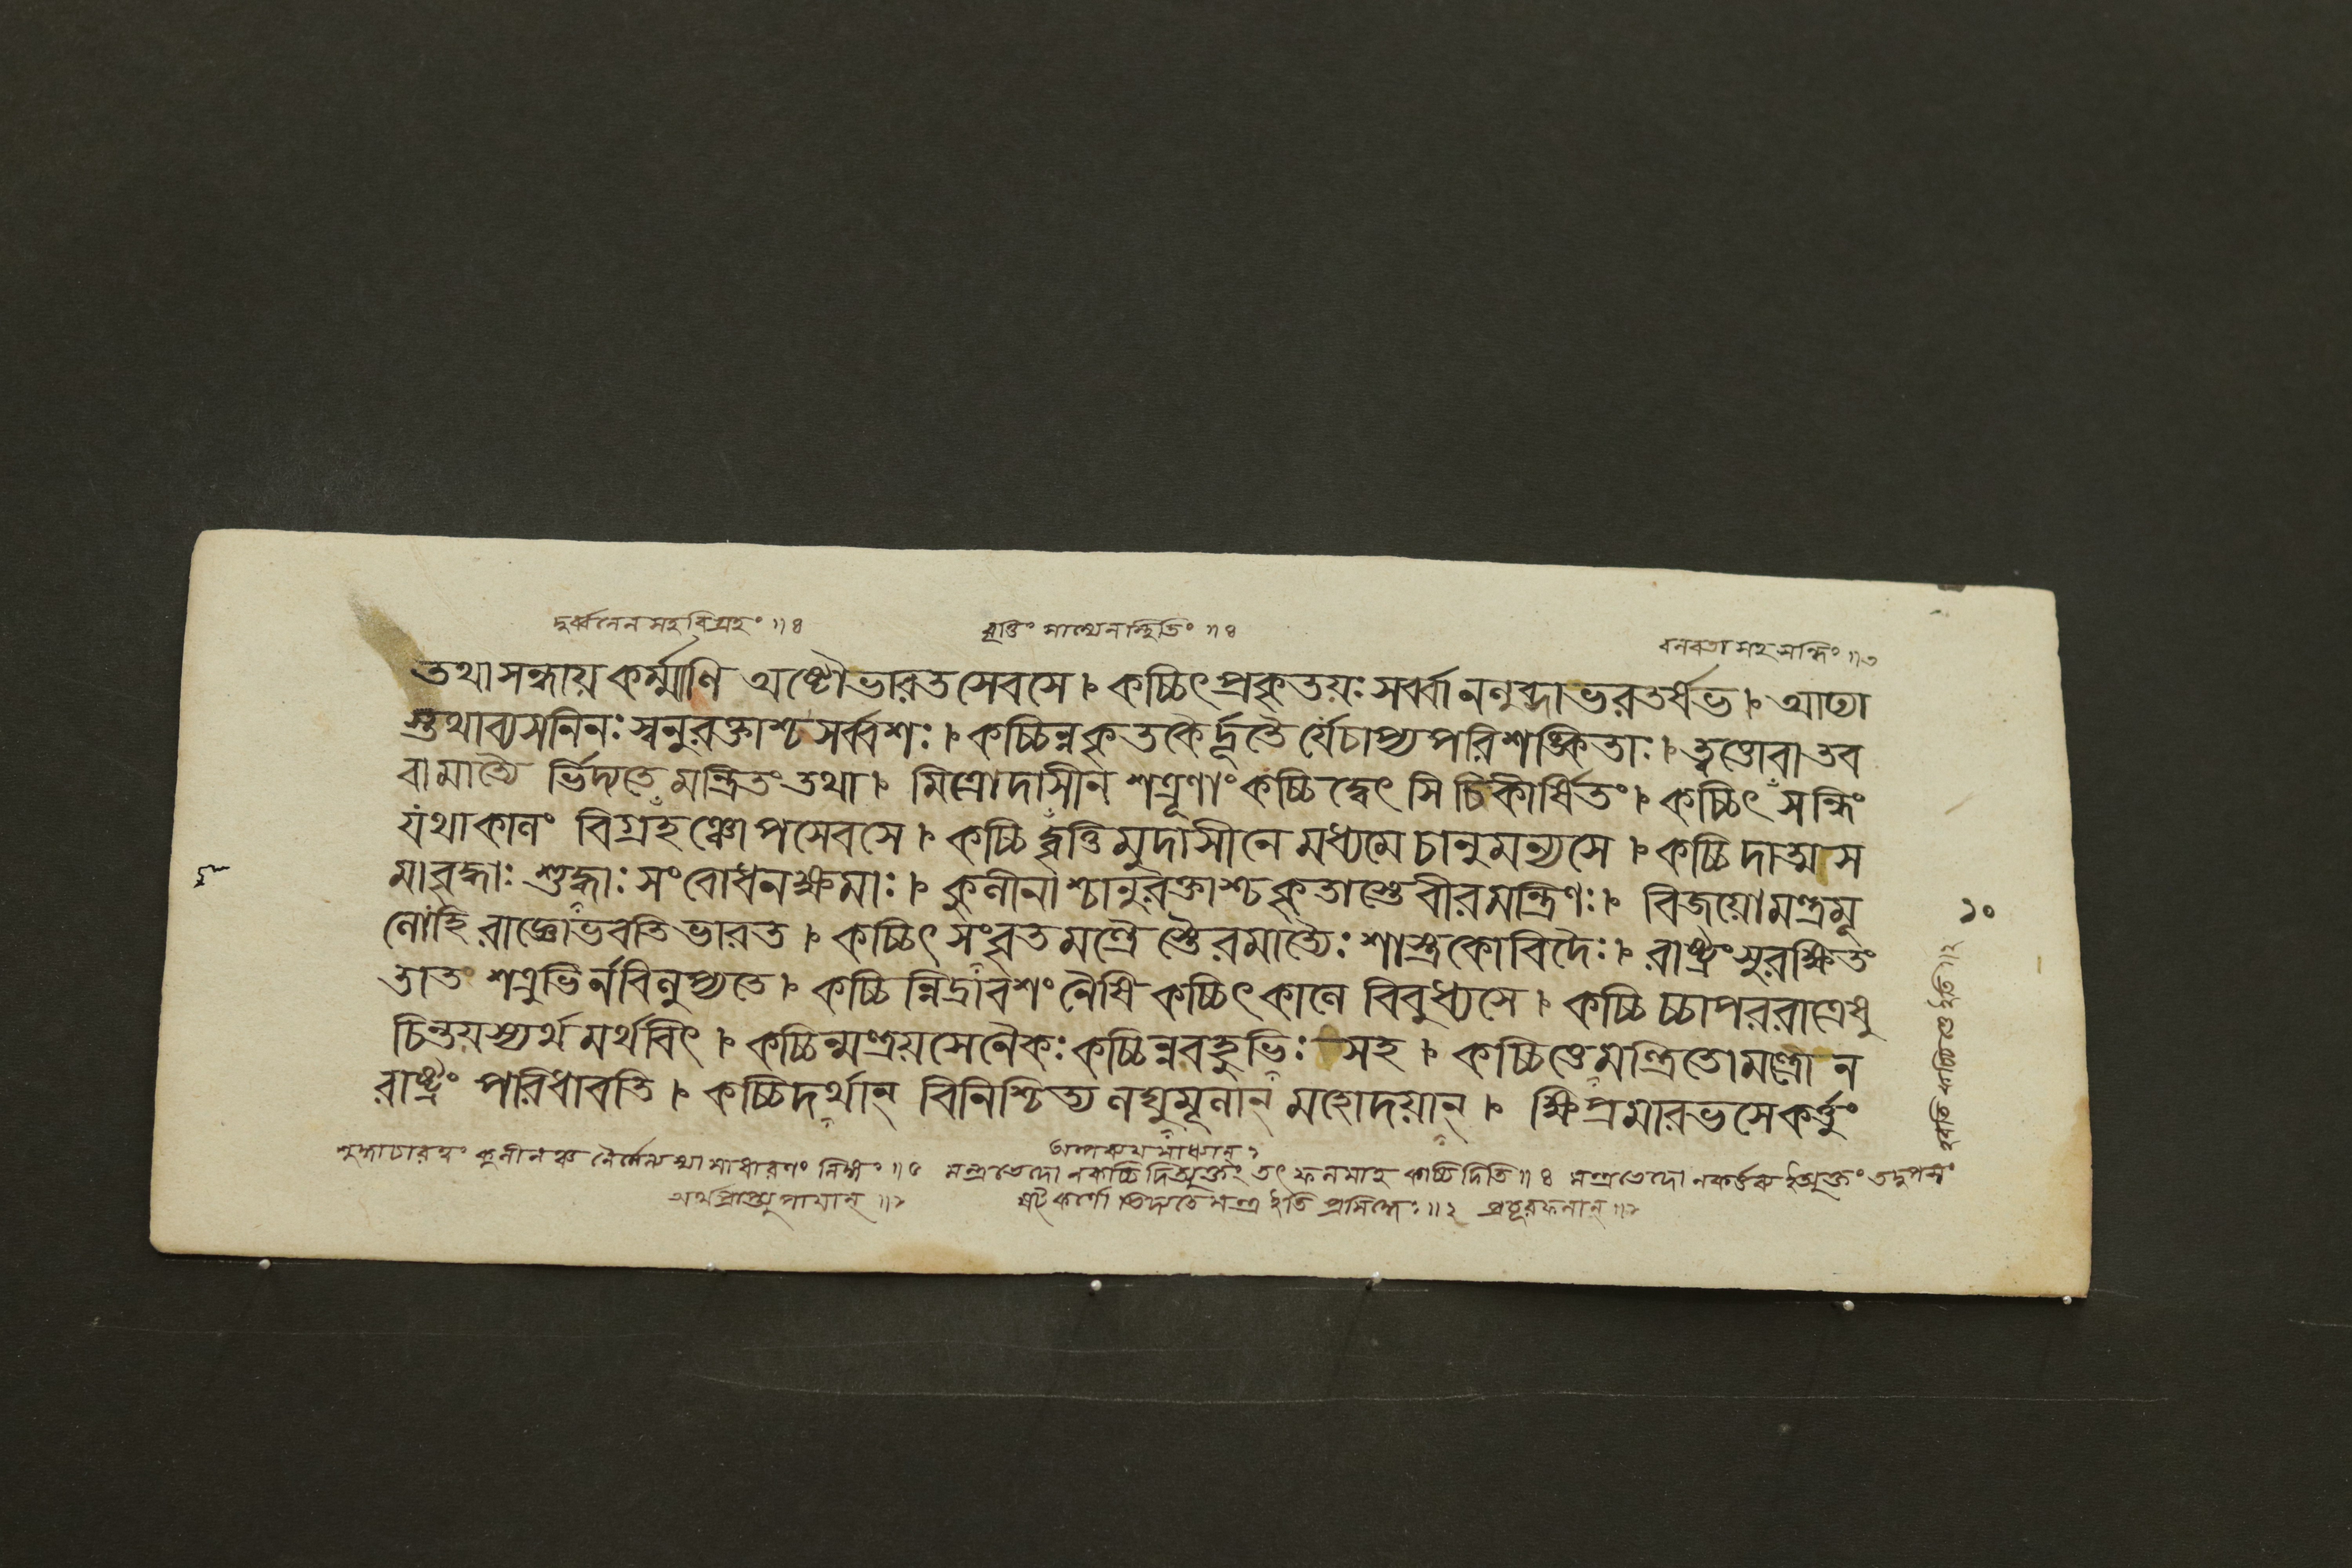 দুর্ব্বলেন সহ বিগ্রহং ॥ ৪
বৃত্তিং সাম্যেন স্থিতিং ॥ ৪
বলবতা সহ সন্ধিং ॥ ৩
তথা সন্ধায় কর্ম্মাণি অষ্টৌ ভারত সেবসে । কচ্চিৎ প্রকৃতয়ঃ সর্ব্বা ন লুব্ধা ভরতর্ষভ । আঢ্যা
স্তথাব্যসনিনঃ স্বনুরক্তাশ্চ সর্ব্বশঃ । কচ্চিন্ন কৃতকৈর্দূতৈর্যে চাপ্যপরিশঙ্কিতাঃ । ত্বত্তো বা তব
বামাত্যৈ র্ভিদ্যতে মন্ত্রিতং তথা । মিত্রোদাসীন শত্রূণাং কচ্চিদ্বেৎসি চিকীর্ষিতং । কচ্চিৎ সন্ধিং
যথাকালং বিগ্রহঞ্চোপসেবসে । কচ্চিদ্বৃত্তিমুদাসীনে মধ্যমে চানুমন্যসে । কচ্চিদাত্মস
মা বৃদ্ধাঃ শুদ্ধাঃ সংবোধনক্ষমাঃ । কুলীনাশ্চানুরক্তাশ্চ কৃতাস্তে বীর মন্ত্রিণঃ । বিজয়ো মন্ত্রমূ
লো হি রাজ্ঞো ভবতি ভারত । কচ্চিৎ সংবৃতমন্ত্রৈস্তৈরমাত্যৈঃ শাস্ত্রকোবিদৈঃ । রাষ্ট্রং সুরক্ষিতং
তাত শত্রুভির্ন বিলুপ্যতে । কচ্চিন্নিদ্রাবশং নৈষি কচ্চিৎ কালে বিবুধ্যসে । কচ্চিচ্চাপররাত্রেষু
চিন্তয়স্যর্থমর্থবিৎ । কচ্চিন্মন্ত্রয়সে নৈকঃ কচ্চিন্ন বহুভিঃ সহ । কচ্চিত্তে মন্ত্রিতো মন্ত্রো ন
রাষ্ট্রং পরিধাবতি । কচ্চিদর্থান্ বিনিশ্চিত্য লঘুমূলান্ মহোদয়ান্ । ক্ষিপ্রমারভসে কর্ত্তুং
১০
কচ্চিত্তে ইতি ॥ ২
মন্ত্রভেদো ন কচ্চিদিত্যুক্তং তৎ ফলমাহ কচ্চিদিতি ॥ ৪ মন্ত্রভেদো
ষট্কর্ণো ভিদ্যতে মন্ত্র ইতি প্রসিদ্ধেঃ ॥ ২ প্রচুরফলান্ ॥